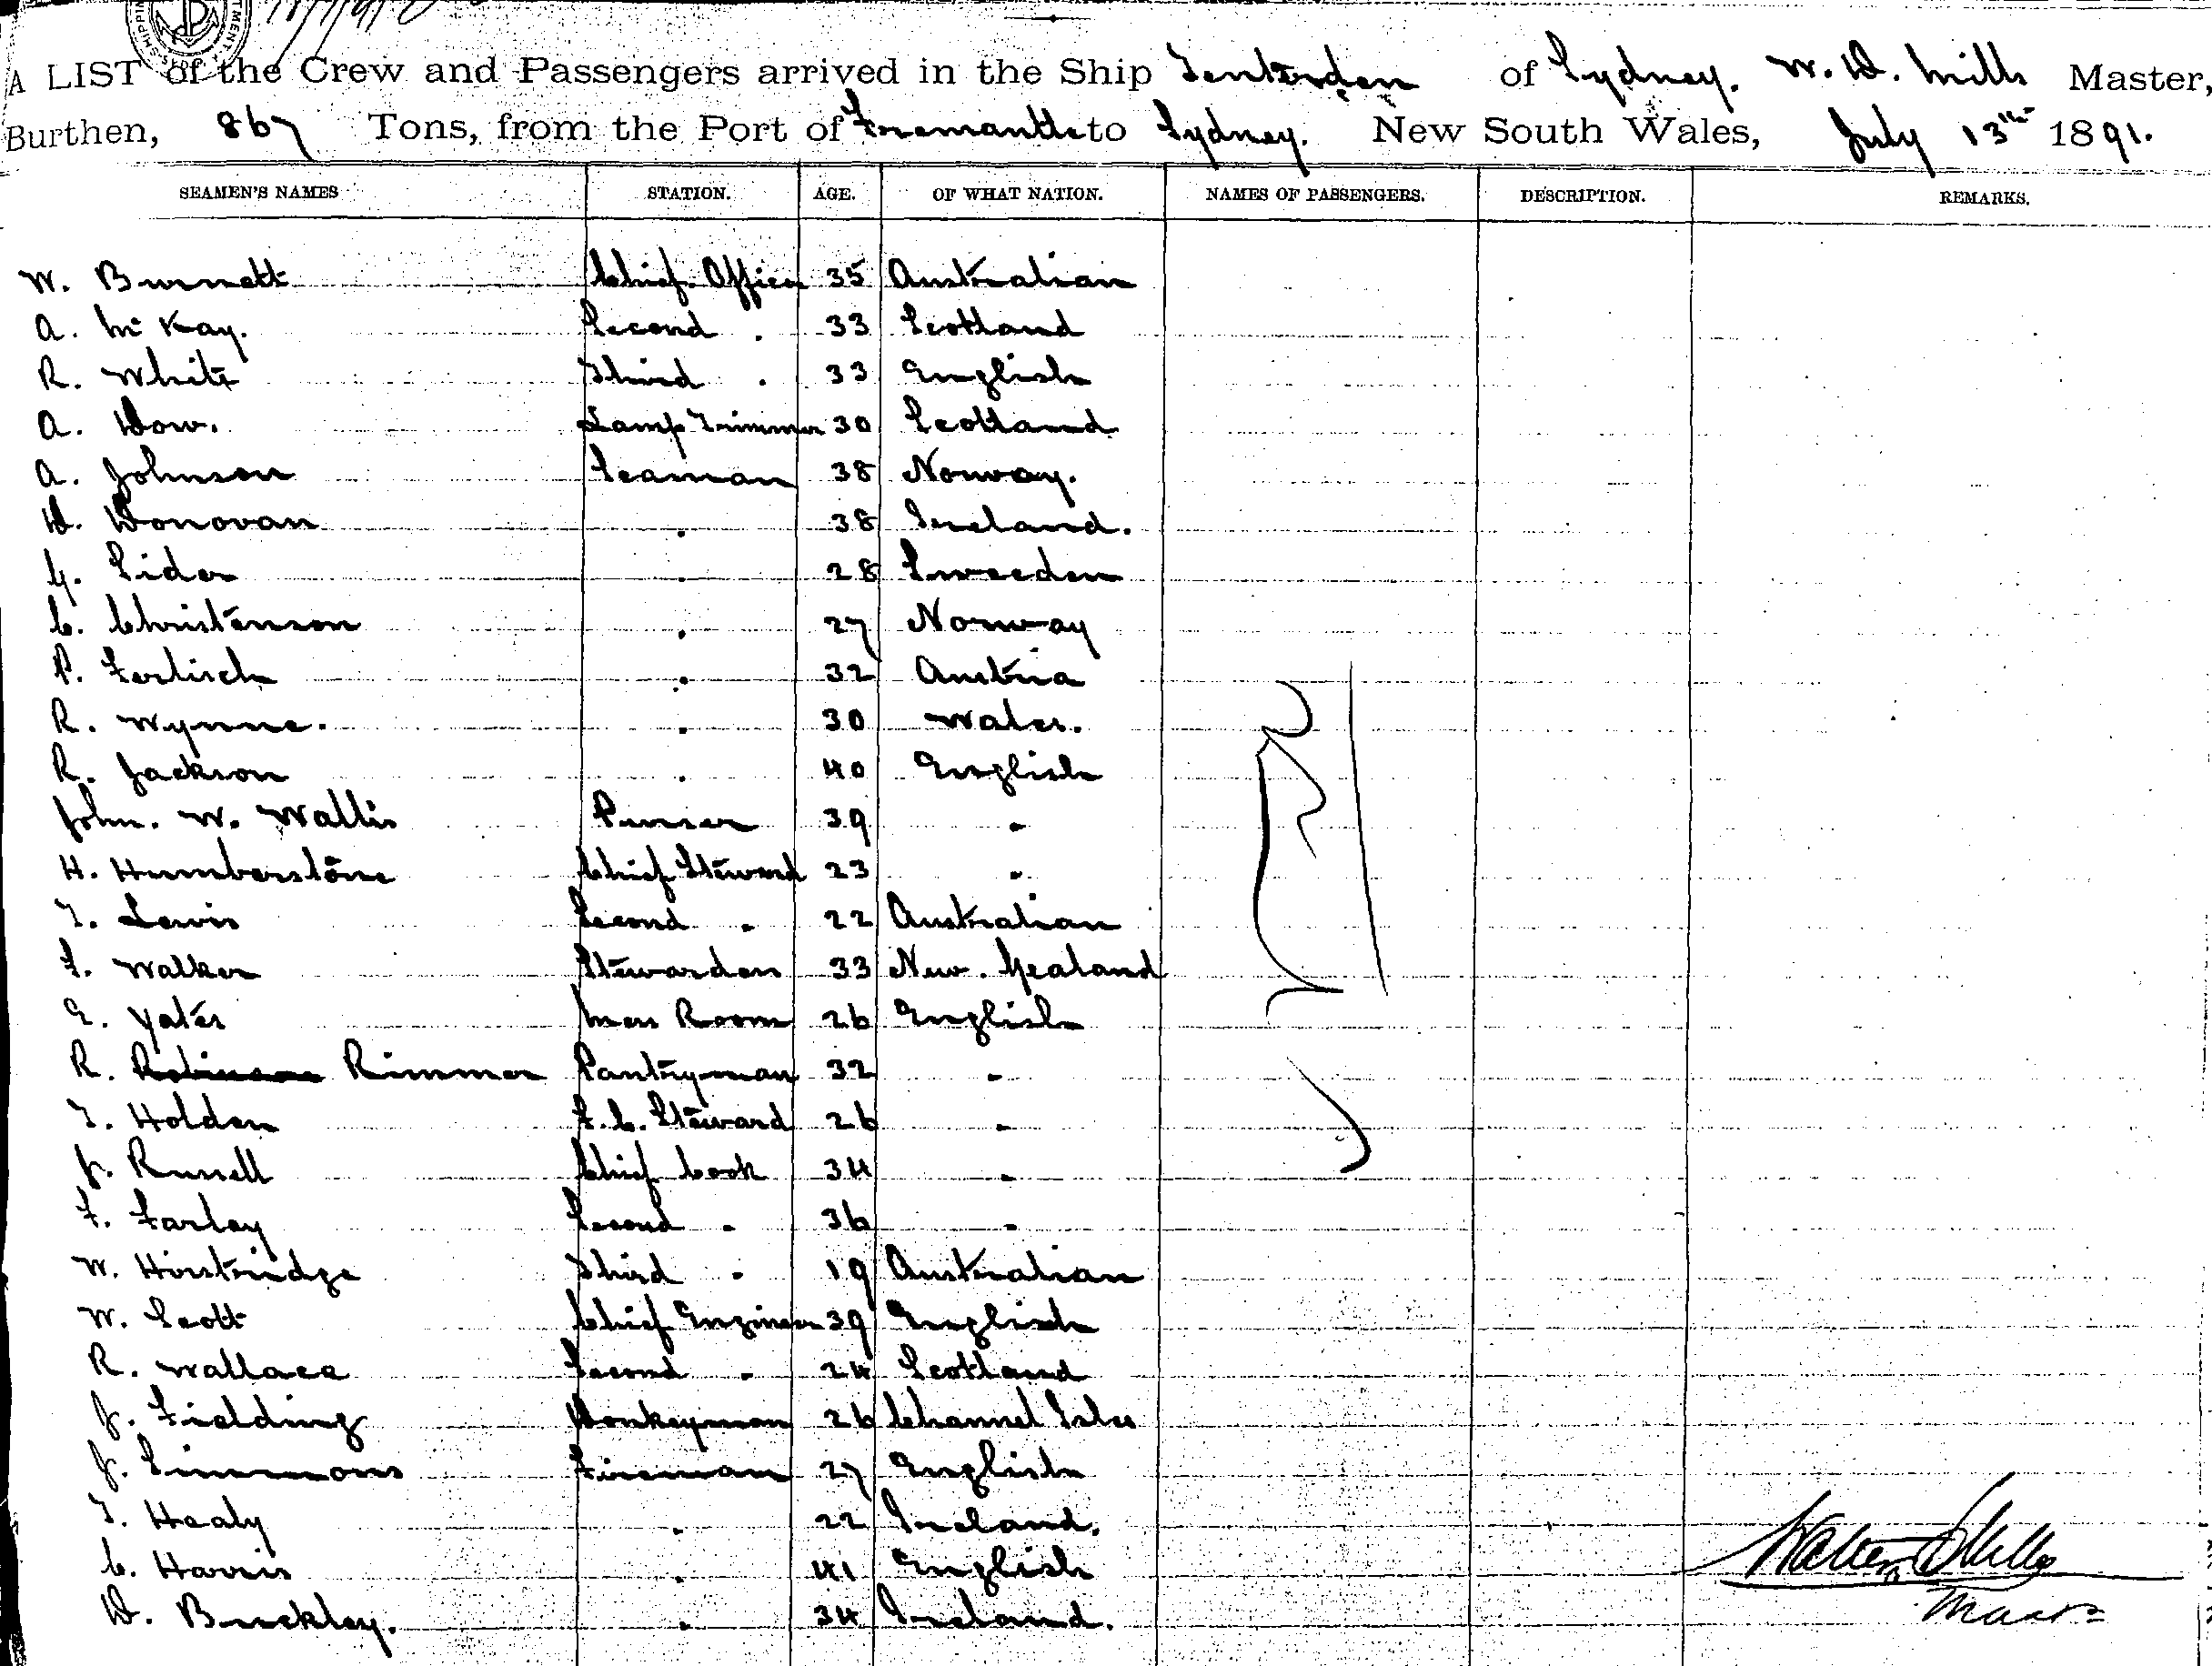 A LIST of the Crew and Passengers arrived in the Ship Tenterden of Sydney. W. D. Mills Master,
Burthen, 867 Tons, from the Port of Fremantle to Sydney. New South Wales, July 13th 1891.
SEAMEN'S NAMES STATION. AGE. OF WHAT NATION. NAMES OF PASSENGERS. DESCRIPTION. REMARKS.
W. Burnett Chief Officer 35 Australian
A. McKay. Second . 33 Scotland
R. White Third . 33 English
A. Dow. Lamp Trimmer 30 Scotland
A. Johnson Seaman 38 Norway.
D. Donovan . 38 Ireland.
G. Sider . 28 Sweeden
C. Christenson . 27 Norway
P. Ferlisch . 32 Austria
R. Wynne. . 30 Wales.
R. Jackson . 40 English
John. W. Wallis Purser 39 "
H. Humberstone Chief Steward 23 "
T. Lewis Second " 22 Australian
F. Walker Stewardess 33 New. Zealand
E. Yates Mess Room 26 English
R. Robinson Rimmer Pantryman 32 "
T. Holden F. C. Steward 26 "
J. Russell Chief Cook 34 "
F. Farley Second " 36 "
W. Hirstridge Third " 19 Australian
W. Scott Chief Engineer 39 English
R. Wallace Second " 24 Scotland
J. Fielding Donkeyman 26 Channel Isles
J. Simmons Fireman 27 English
T. Healy . 22 Ireland.
C. Harris . 41 English
D. Buckley. . 34 Ireland.
Walter D Mills
Master